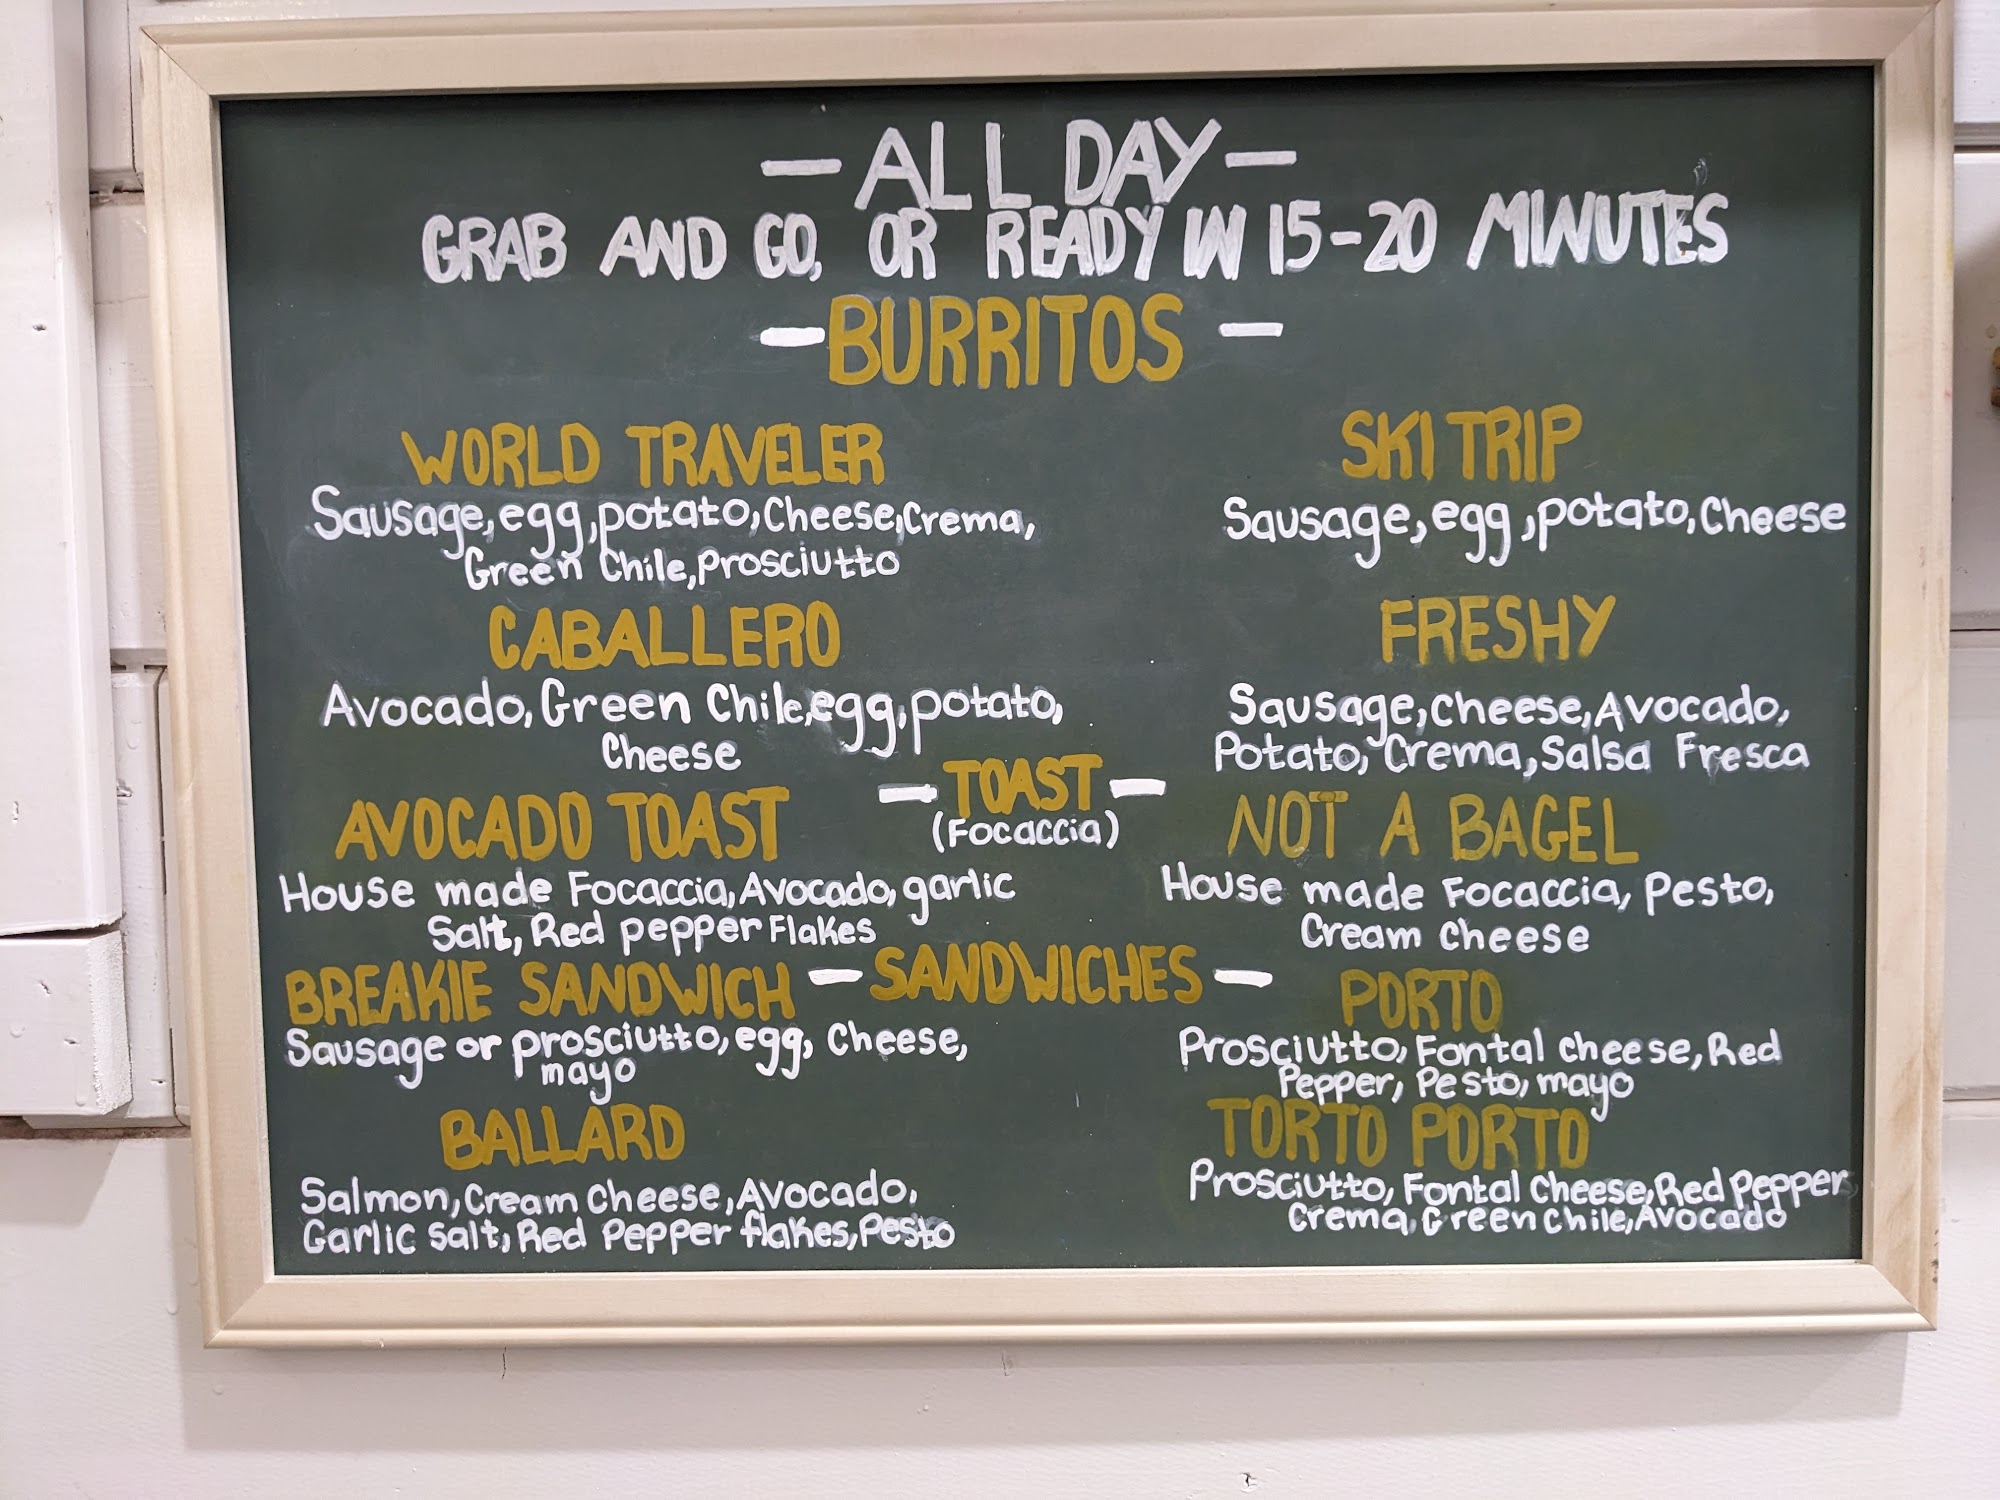 — ALL DAY —
GRAB AND GO, OR READY IN 15-20 MINUTES
— BURRITOS —
WORLD TRAVELER
Sausage, egg, potato, Cheese, Crema,
Green Chile, Prosciutto
SKI TRIP
Sausage, egg, potato, Cheese
CABALLERO
Avocado, Green Chile, egg, potato,
Cheese
FRESHY
Sausage, Cheese, Avocado,
Potato, Crema, Salsa Fresca
— TOAST —
(Focaccia)
AVOCADO TOAST
House made Focaccia, Avocado, garlic
Salt, Red pepper Flakes
NOT A BAGEL
House made Focaccia, Pesto,
Cream Cheese
— SANDWICHES —
BREAKIE SANDWICH
Sausage or prosciutto, egg, Cheese,
mayo
PORTO
Prosciutto, Fontal cheese, Red
Pepper, Pesto, mayo
BALLARD
Salmon, Cream Cheese, Avocado,
Garlic Salt, Red Pepper flakes, Pesto
TORTO PORTO
Prosciutto, Fontal Cheese, Red Pepper
Crema, Green Chile, Avocado